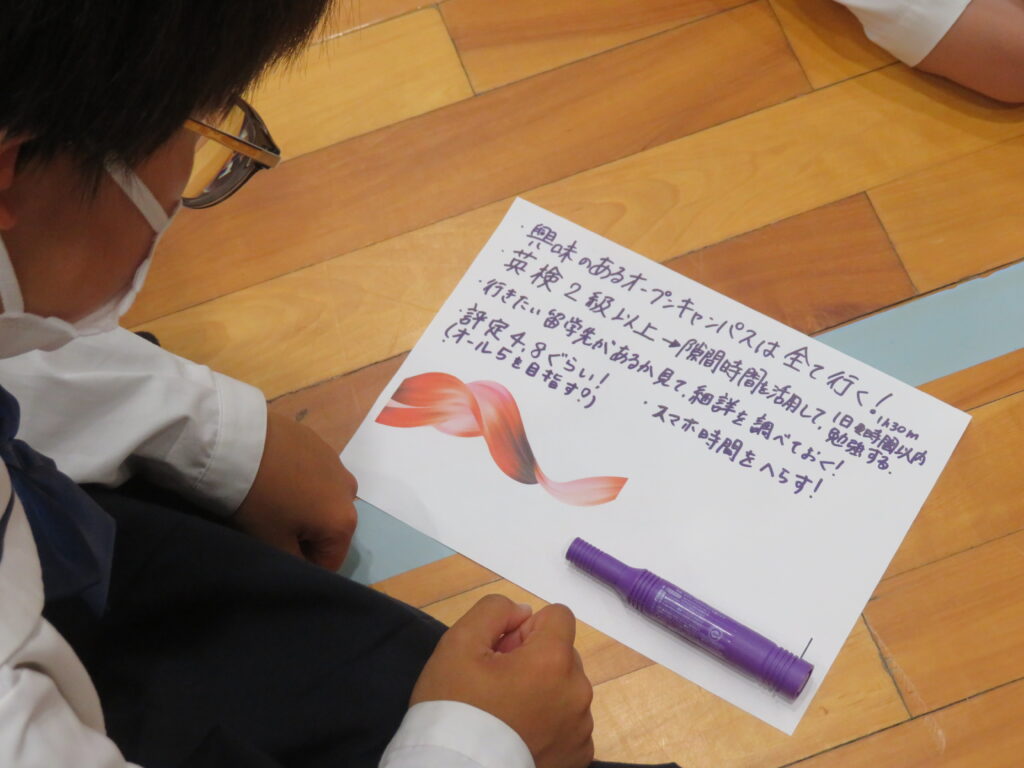 ・興味のあるオープンキャンパスは全て行く！
・英検2級以上→隙間時間を活用して、1日
1h30m
時間以内
勉強する.
・行きたい留学先があるか見て、細詳を調べておく！
・評定4.8ぐらい！
・スマホ時間をへらす！
(オール5を目指す！)